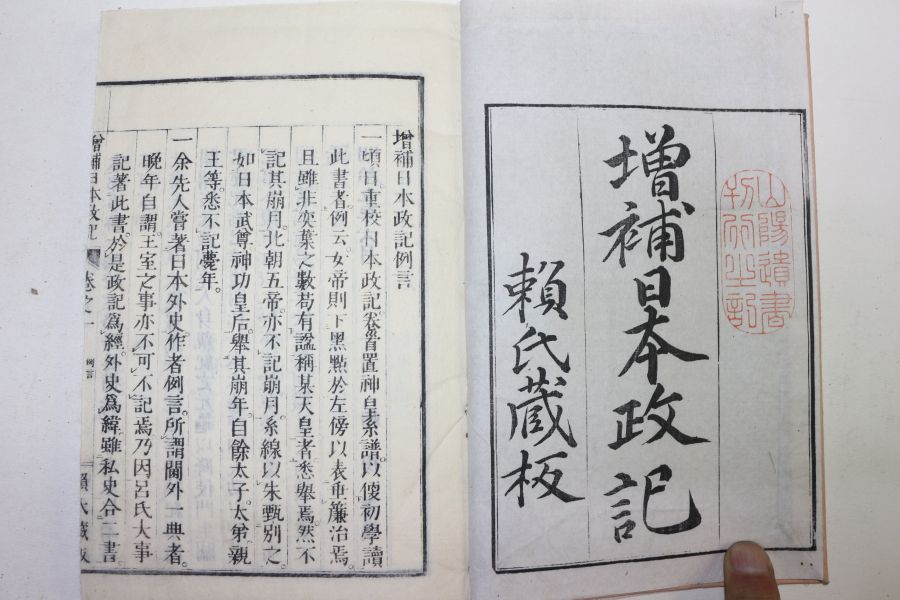 山陽遺書
增補日本政記
賴氏蔵板
增補日本政記例言
一頃日重校日本政記。卷首置神皇系譜。以便初學讀
此書者例云。女帝則下黑點於左傍以表垂簾治焉
且雖非奕葉之數苟有謚稱某天皇者悉舉焉。然不
記其崩月。北朝五帝。亦不記崩月。系線以朱甄別之。
如日本武尊神功皇后。舉其崩年。自餘太子。太弟。親
王等。悉不記薨年。
一余先人嘗著日本外史。作者例言。所謂閫外一典者。
晚年自謂。王室之事亦不可不記焉。乃因呂氏大事
記著此書。於是政記爲經。外史爲緯。雖私史合二書。
增補日本政記 卷之一 例言 賴氏藏板